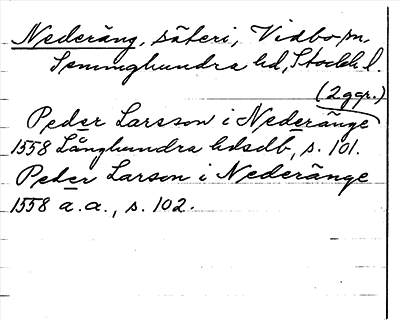 Nederäng, säteri, Vidbo sn,
Seminghundra hd, Stockh. l.
(2 ggr.)
Peder Larsson i Nederänge
1558 Långhundra hdsdb, s. 101.
Peder Larson i Nederänge
1558 a.a., s. 102.